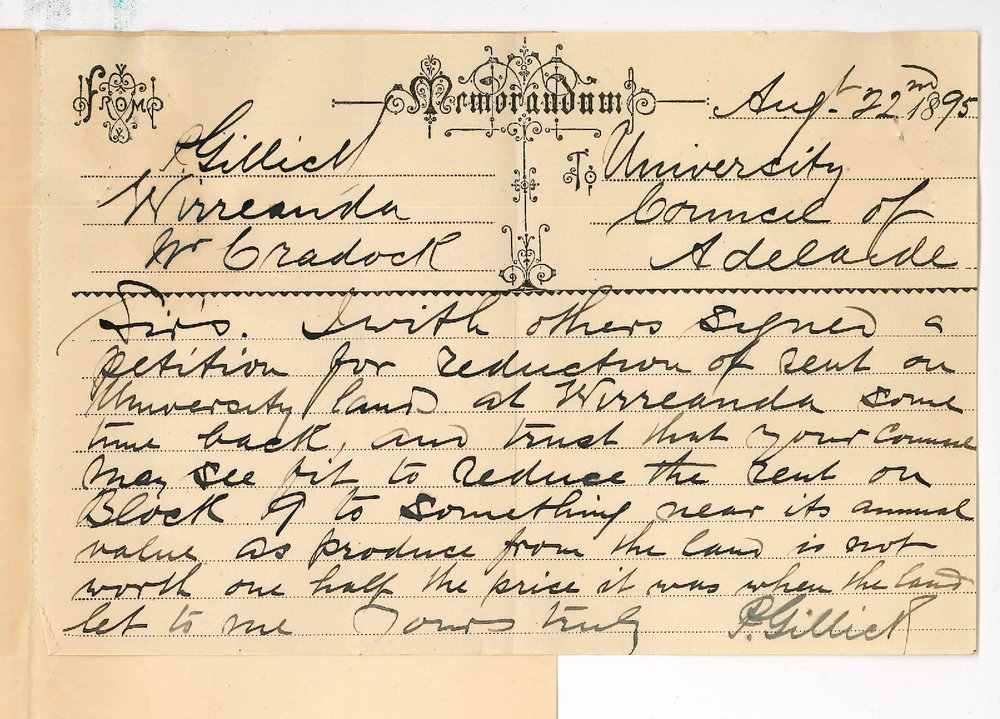 FROM
Memorandum
Augt 22nd 1895
P Gillick
To University
Wirreanda
Council of
Nr Cradock
Adelaide
Sir's. I with others signed a
petition for reduction of rent on
University lands at Wirreanda some
time back, and trust that your Council
may see fit to reduce the rent on
Block 9 to something near its annual
value as produce from the land is not
worth one half the price it was when the land
let to me Yours truly P. Gillick